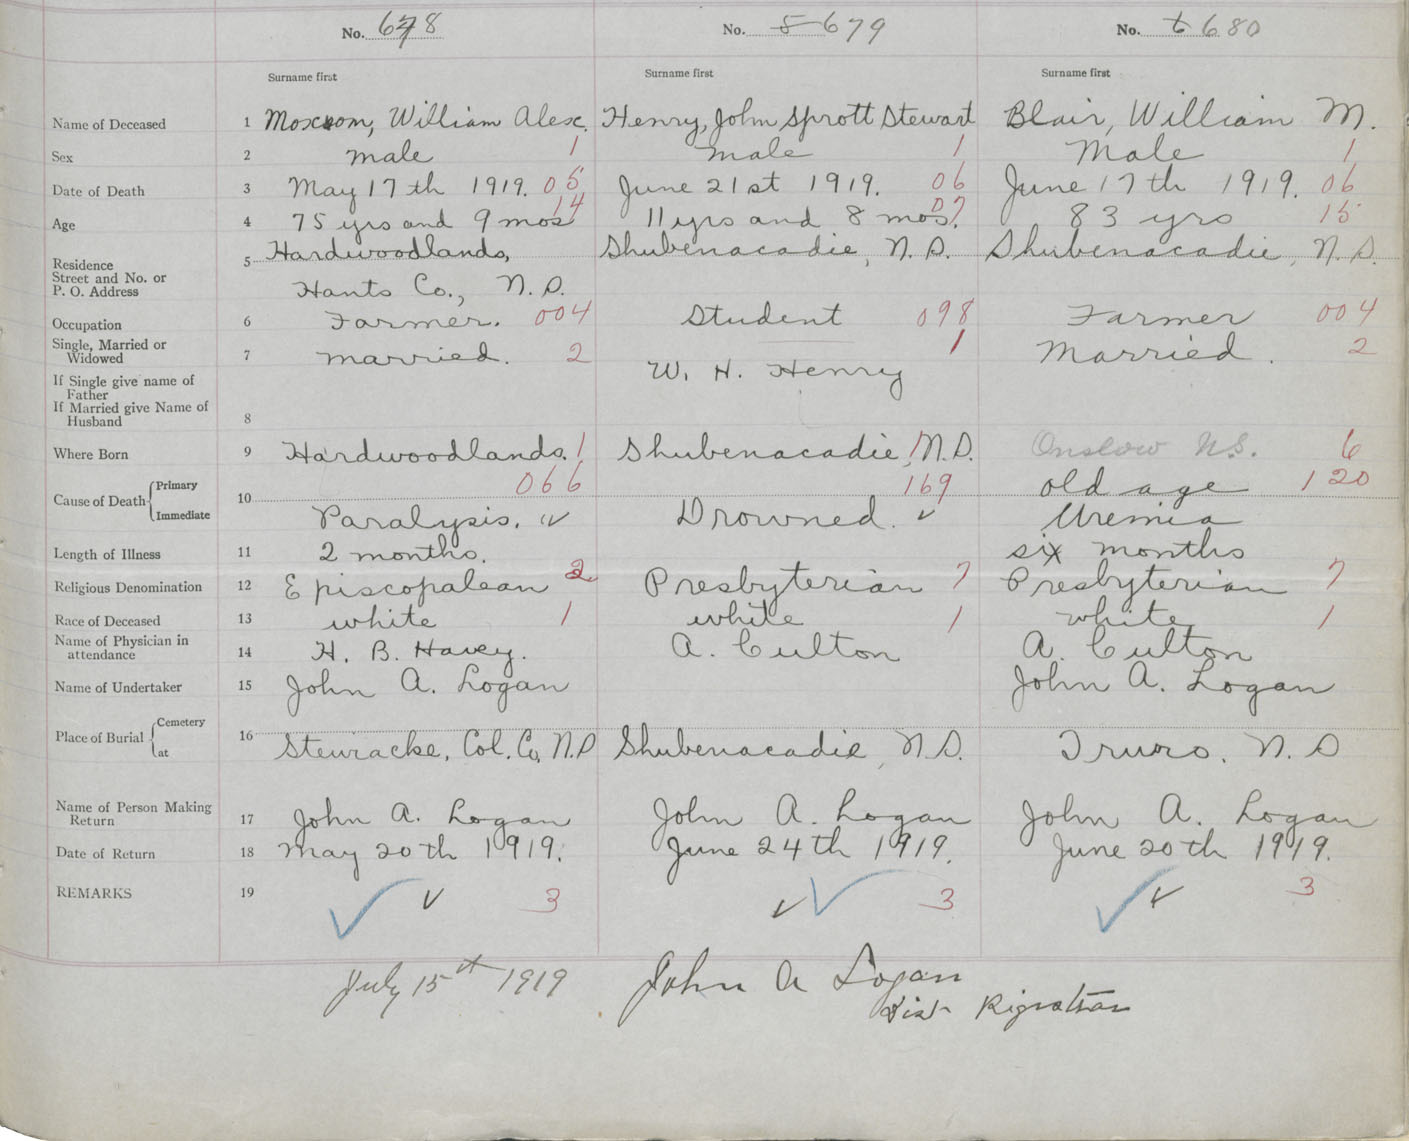 No. 678 No. 5 679 No. 6 680
Surname first Surname first Surname first
Name of Deceased 1 Moxsom, William Alex. Henry, John Sprott Stewart Blair, William M.
Sex 2 male 1 male 1 Male 1
Date of Death 3 May 17th 1919. 05 June 21st 1919. 06 June 17th 1919. 06
Age 4 75 yrs and 9 mos 14 11 yrs and 8 mos. 07 83 yrs 15
Residence
Street and No. or
P. O. Address
5 Hardwoodlands, Shubenacadie, N.S. Shubenacadie, N.S.
Hants Co., N.S.
Occupation 6 Farmer. 004 Student 098 Farmer 004
Single, Married or
Widowed
7 married. 2 1 Married. 2
If Single give name of
Father
If Married give Name of
Husband
8 W. H. Henry
Where Born 9 Hardwoodlands. 1 Shubenacadie, 1 N.S. Onslow N.S. 6
Cause of Death Primary 066 169 old age 120
Immediate 10 Paralysis. Drowned. Uremia
Length of Illness 11 2 months. six months
Religious Denomination 12 Episcopalean 2 Presbyterian 7 Presbyterian 7
Race of Deceased 13 white 1 white 1 white 1
Name of Physician in
attendance
14 H. B. Havey. A. Culton A. Culton
Name of Undertaker 15 John A. Logan John A. Logan
Place of Burial Cemetery
at
16 Stewiacke, Col. Co, N.S Shubenacadie, N.S. Truro. N.S
Name of Person Making
Return
17 John A. Logan John A. Logan John A. Logan
Date of Return 18 May 20th 1919. June 24th 1919. June 20th 1919.
REMARKS 19 3 3 3
July 15th 1919 John A Logan